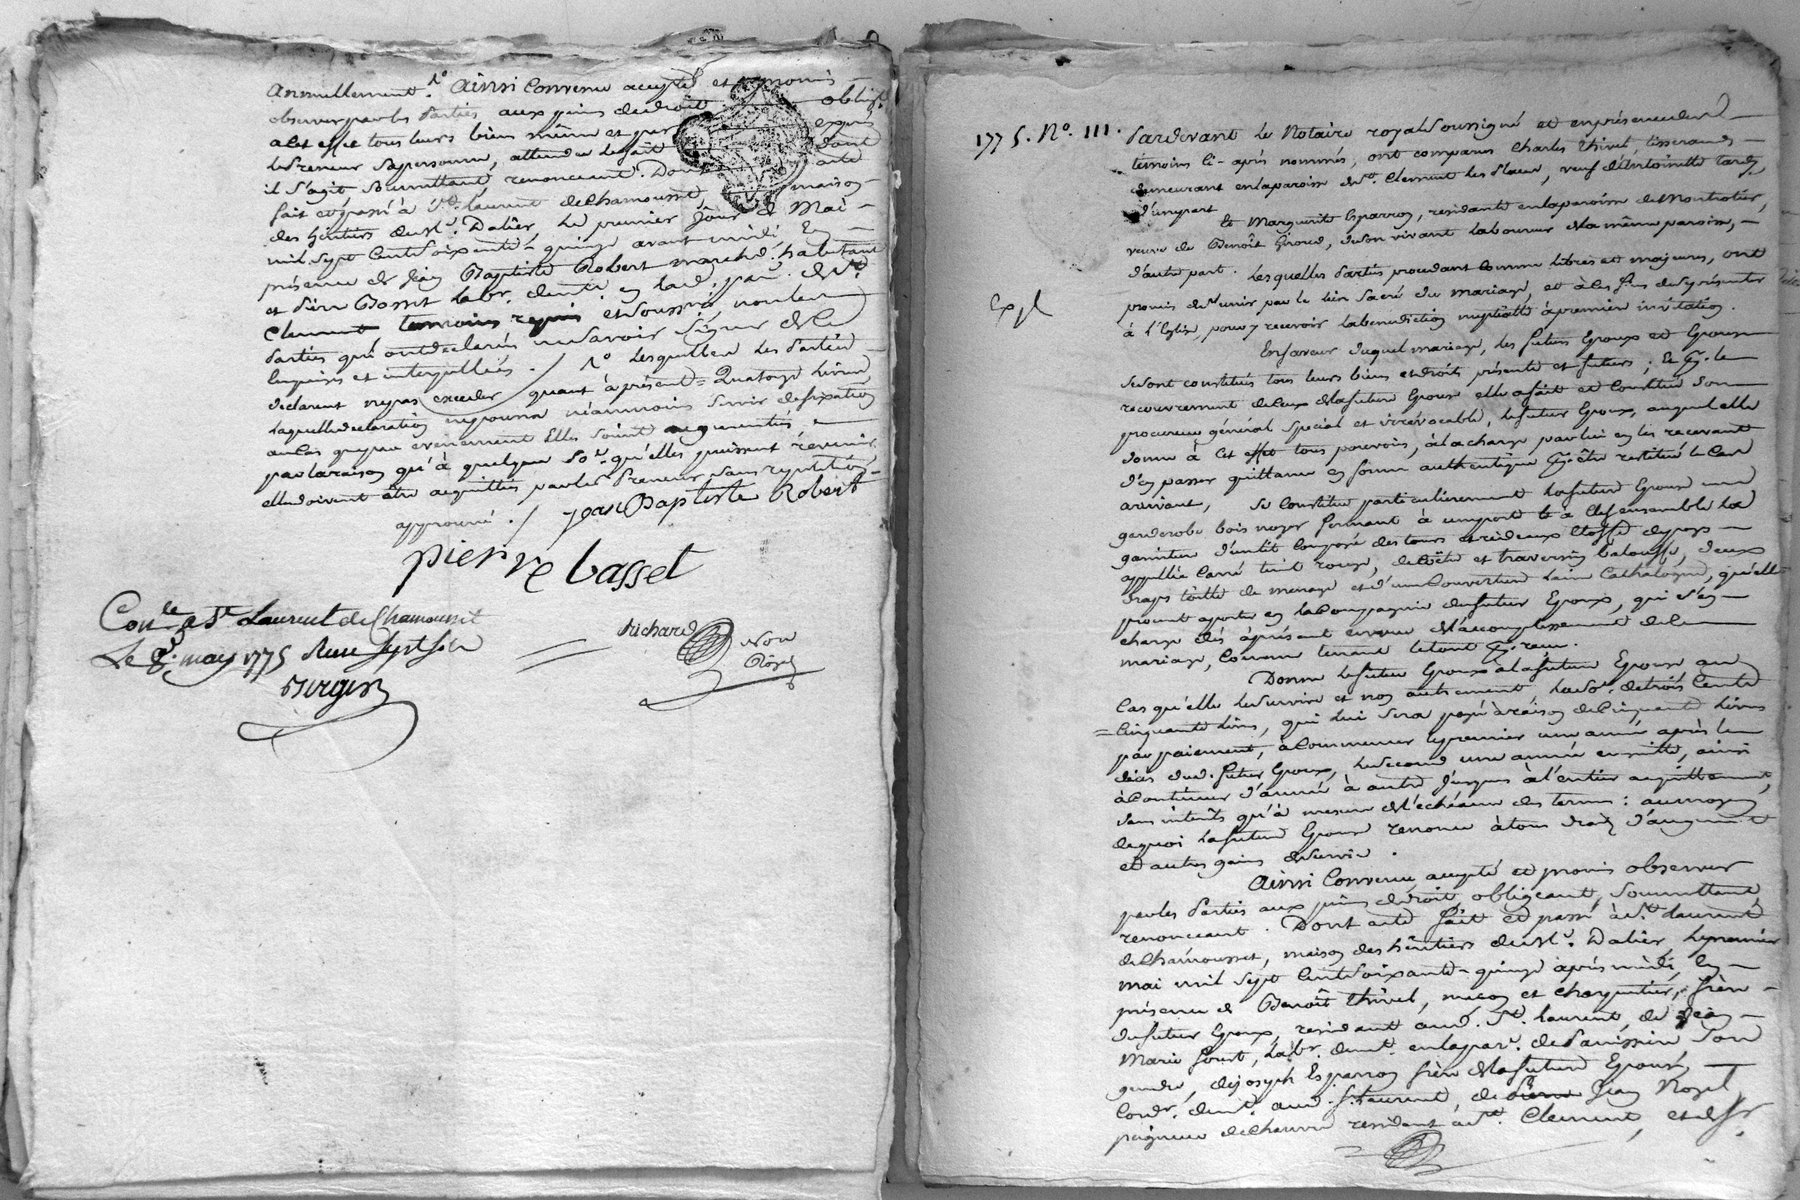 annuellement. 1º Ainsi convenu accepté et promis
observer par les Parties aux peines de droit obligt.
à cet effet tous leurs biens même et par exprès
le Preneur sa personne, attendu le fait dont
il s'agit soumettant, renonceant. Dont acte
fait et passé à St. Laurent de Chamousset maison
des héritiers du Sr. Dalier, le premier jour de Mai
mil sept cent soixante-quinze avant midi, En
présence de Jean Baptiste Robert marchd. habitant
et Pierre Basset labr. demt. en lad. par. de St.
Clement temoins requis et soussés. non les
Parties qui ont déclaré ne savoir signer de ce
enquises et interpellées. / 1º lesquelles les Parties
declarent ne pas exceder quant à présent Quatorze livres
laquelle declaration ne pourra néanmoins servir de fixation
au cas que par evenement Elles soient augmentées,
par la raison qu'à quelque Se. qu'elles puissent revenir
elles doivent être acquittées par les Preneurs sans repetition
approuvé. / Jean Baptiste Robert
pierre basset
Richard
Not.
Royal
Conlé. a St. Laurent de Chamousset
Le 8. may 1775 Reçu sept sols
1775. Nº. 111.
Pardevant le Notaire royal soussigné et en présence des
temoins ci-après nommés, ont comparus Charles Thivel, tisserand
demeurant en la paroisse de St. Clement les Places, veuf d'Antoinette Tardy,
d'une part
Et Marguerite Esparron, residante en la paroisse de Montrotier,
veuve de Benoît Giroud, de son vivant laboureur de la même paroisse,
d'autre part. Lesquelles Parties procedant comme libres et majeures, ont
promis de s'unir par le lien sacré du mariage, et à ces fins de se présenter
à l'Eglise, pour y recevoir la benediction nuptialle à premiere invitation.
Expé
En faveur duquel mariage, les futurs Epoux et Epouse
se sont constitués tous leurs biens et droits présents et futurs; Et pr. le
recouvrement de ceux de la future Epouse elle a fait et constitué son
procureur général special et irrévocable, le futur Epoux, auquel elle
donne à cet effet tous pouvoirs, à la charge par lui en les recevant
d'en passer quittance en forme authentique pr. être restitué le cas
arrivant, Se constitue particulierement la future Epouse une
garderobe bois noyer fermant à une porte et à clef ensemble la
garniture d'un lit composé des tours et rideaux etoffe de pays
appellée Carré teint rouge, de coëte et traversin baloufe, deux
draps toille de menage et d'une couverture laine Cathalogne, qu'elle
promet apporter en la compagnie du futur Epoux, qui s'en
charge dès àprésent en vue de l'accomplissement de ce
mariage, Comme tenant le tout pr. reçu.
Donne le futur Epoux à la future Epouse au
cas qu'elle le survive et non autrement, la Se. de trois cents
cinquante livres, qui lui sera payée à raison de cinquante livres
par paiement, à commencer le premier une année après le
décès dud. futur Epoux, le second une année ensuitte, ainsi
à continuer d'année à autre jusques à l'entier acquittement,
sans interêts qu'à mesure de l'echéance des termes: au moyen
de quoi la future Epouse renonce à tous droits d'augment
et autres gains de survie.
Ainsi Convenu accepté et promis observer
par les Parties aux peines de droit, obligeant, soumettant,
renonceant. Dont acte fait et passé à St. Laurent
de Chamousset, maison des héritiers du Sr. Dalier, le premier
mai mil sept cent soixante-quinze après midi, En
présence de Benoît Thivel, maçon et charpentier, frere
du futur Epoux, residant aud. St. Laurent, de Jean
Marie labr. demt. en la par. de Panissiere son
gendre, de Joseph Esparron frere de la future Epouse,
Cordr. demt. aud. St. Laurent, de Pierre Jean
peigneur de chanvre residant à St. Clement, et de Sr.